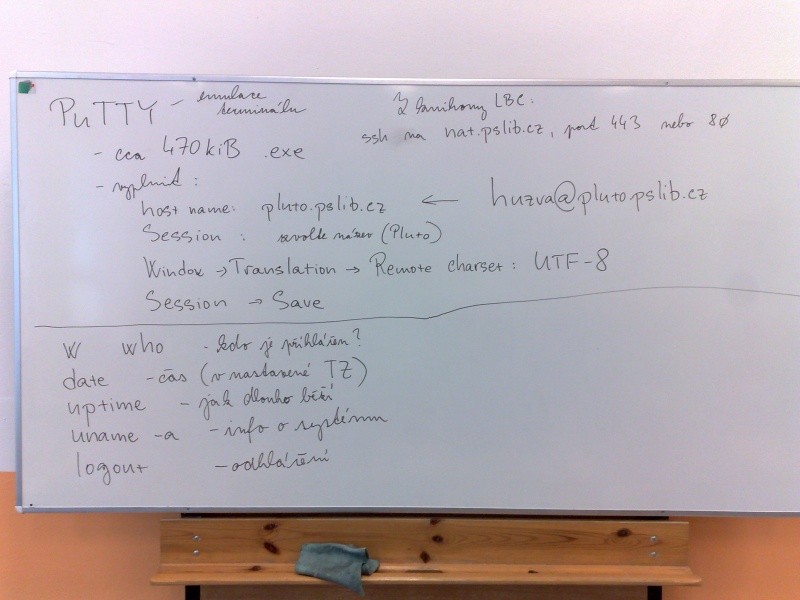 PuTTY - emulace terminálu
- cca 470kiB .exe
- vyplnit:
host name: pluto.pslib.cz ← huzva@pluto.pslib.cz
Session : zvolte název (Pluto)
Window → Translation → Remote charset: UTF-8
Session → Save
Z knihovny LBC:
ssh na nat.pslib.cz, port 443 nebo 80
w who - kdo je přihlášen?
date - čas (v nastavené TZ)
uptime - jak dlouho běží
uname -a - info o systému
logout - odhlášení